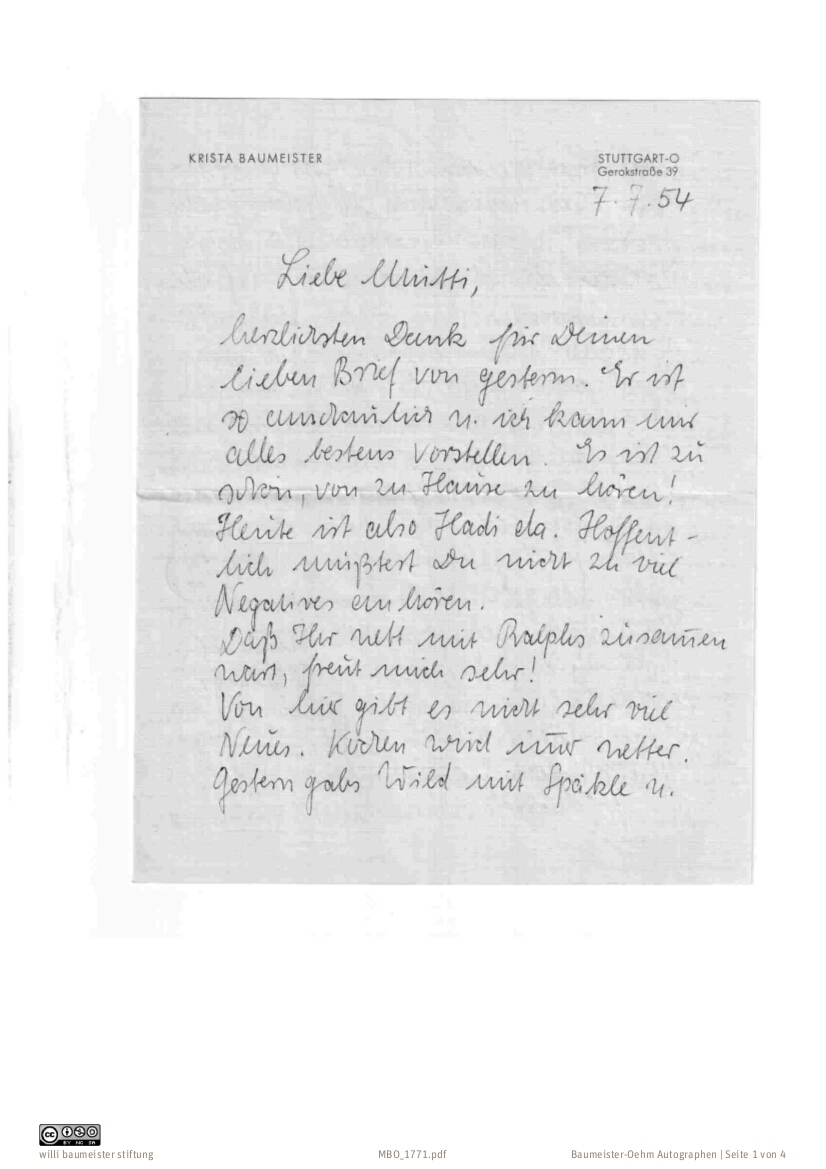 KRISTA BAUMEISTER
STUTTGART-O
Gerokstraße 39
7.7.54
Liebe Mutti,
herzlichsten Dank für Deinen
lieben Brief von gestern. Er ist
so anschaulich u. ich kann mir
alles bestens vorstellen. Es ist zu
schön, von zu Hause zu hören!
Heute ist also Hadi da. Hoffent-
lich mußtest Du nicht zu viel
Negatives anhören.
Daß Ihr nett mit Ralphs zusam̅en
wart, freut mich sehr!
Von hier gibt es nicht sehr viel
Neues. Kochen wird im̅er netter.
Gestern gabs Wild mit Spätzle u.
CC BY NC SA
willi baumeister stiftung
MBO_1771.pdf
Baumeister-Oehm Autographen | Seite 1 von 4